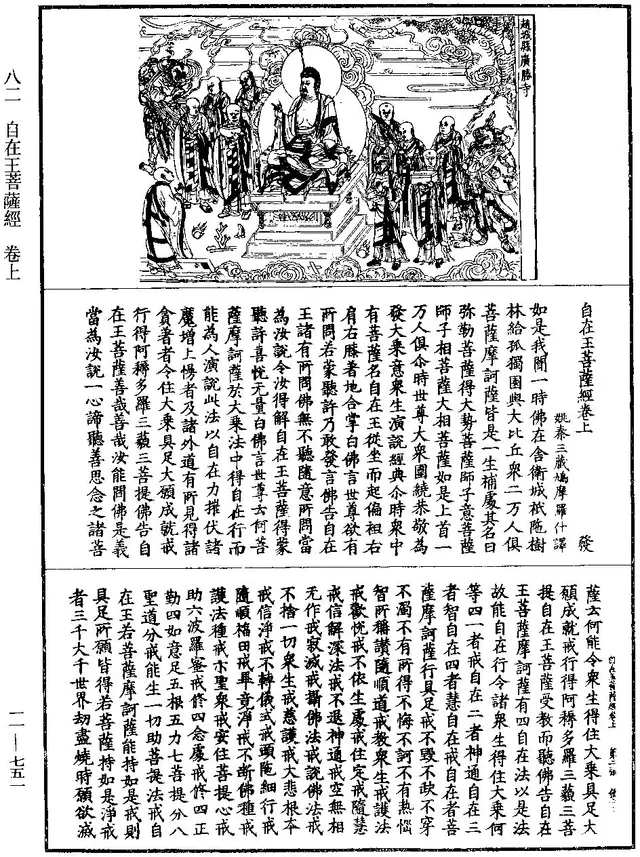 趙城縣廣勝寺
八二　自在王菩薩經　卷上
自在王菩薩經卷上
姚秦三藏鳩摩羅什譯　發
如是我聞一時佛在舍衛城祇陁樹
林給孤獨園與大比丘衆二万人俱
菩薩摩訶薩皆是一生補處其名曰
弥勒菩薩得大勢菩薩師子意菩薩
師子相菩薩大相菩薩如是上首一
万人俱尒時世尊大衆圍繞恭敬為
發大乘意衆生演說經典尒時衆中
有菩薩名自在王從坐而起偏袒右
肩右膝著地合掌白佛言世尊欲有
所問若蒙聽許乃敢發言佛告自在
王諸有所問佛無不聽隨意所問當
為汝說令汝得解自在王菩薩得蒙
聽許喜悅无量白佛言世尊云何菩
薩摩訶薩於大乘法中得自在行而
能為人演說此法以自在力摧伏諸
魔增上慢者及諸外道有所見得諸
貪著者令住大乘具足大願成就戒
行得阿稱多羅三藐三菩提佛告自
在王菩薩善哉善哉汝能問佛是義
當為汝說一心諦聽善思念之諸菩
薩云何能令衆生得住大乘具足大
願成就戒行得阿稱多羅三藐三菩
提自在王菩薩受教而聽佛告自在
王菩薩摩訶薩有四自在法以是法
故能自在行令諸衆生得住大乘何
等四一者戒自在二者神通自在三
者智自在四者慧自在戒自在者菩
薩摩訶薩行具足戒不毀不缺不穿
不濁不有所得不悔不訶不有熱惱
智所稱讚隨順道戒教衆生戒護法
戒歡悅戒不依生處戒住定戒隨慧
戒信解深法戒不退神通戒空無相
无作戒寂滅戒攝佛法戒說佛法戒
不捨一切衆生戒慈護戒大悲根本
戒信淨戒不轉儀式戒頭陁細行戒
隨順福田戒畢竟淨戒不斷佛種戒
護法種戒示聖衆戒安住菩提心戒
助六波羅蜜戒修四念處戒修四正
勤四如意足五根五力七菩提分八
聖道分戒能生一切助菩提法戒自
在王若菩薩摩訶薩能持如是戒則
具足所願皆得若菩薩持如是淨戒
者三千大千世界劫盡燒時願欲滅
一一—七五一